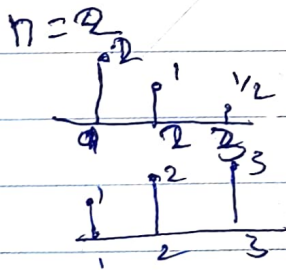 n = 2
2 1 1/2
1 2 3
1 2 3
1 2 3